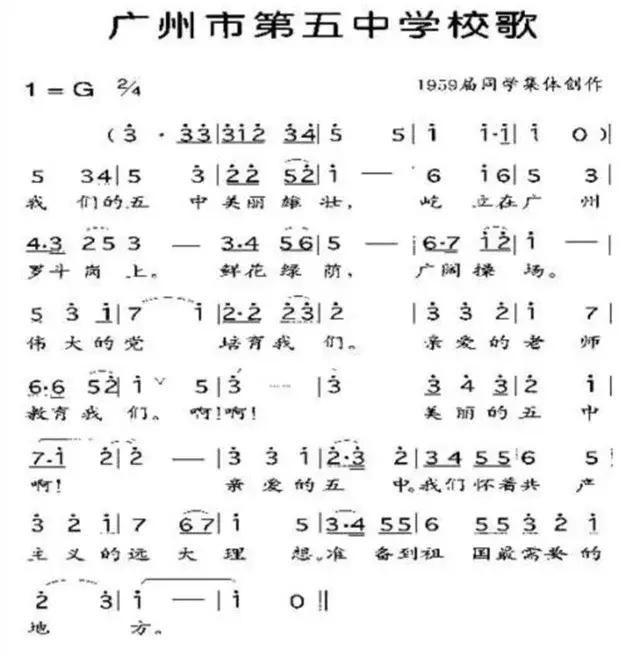 广州市第五中学校歌
1=G 2/4
1959届同学集体创作
(3 · 33|3312 34|5 5|1 1·1|1 0)|
5 34|5 3|22 52|1 — |6 16|5 3|
我们的五中美丽雄壮,屹立在广州
4·3 25|3 — |3·4 56|5 — |6·7 12|1 — |
罗斗岗上。鲜花绿荫,广阔操场。
5 3 1|7 1|2·2 23|2 |3 3 2|1 7|
伟大的党培育我们。亲爱的老师
6·6 52|1 ∨ 5|3 — |3 3 4 3|2 1|
教育我们。啊!啊!美丽的五中
7·1 2|2 — |3 3 1|2·3 2|34 55|6 5|
啊!亲爱的五中。我们怀着共产
3 2 1|7 67|1 5|3·4 55|6 553|2 1|
主义的远大理想。准备到祖国最需要的
2 3|1 — |1 0‖
地方。